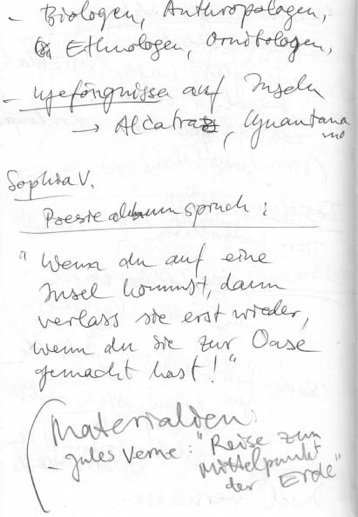 - Biologen, Anthropologen,
Ethnologen, Ornitologen,
- Gefängnisse auf Inseln
→ Alcatraz, Guantana
mo
Sophia V.
Poesiealbumspruch:
"Wenn du auf eine
Insel kommst, dann
verlass sie erst wieder,
wenn du sie zur Oase
gemacht hast!"
Materialien:
- Jules Verne: "Reise zum
Mittelpunkt
der Erde"